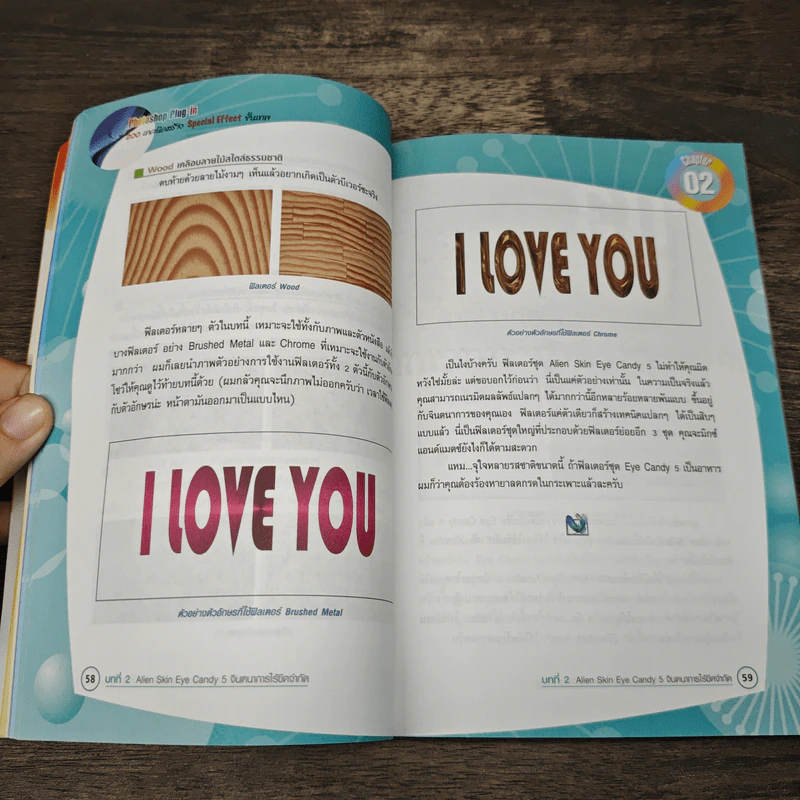 Photoshop Plug-in
Special Effect ขั้นเทพ
Wood เคลือบลายไม้สไตล์ธรรมชาติ
ตบท้ายด้วยลายไม้งามๆ เห็นแล้วอยากเกิดเป็นตัวบีเวอร์ซะจริง
ฟิลเตอร์ Wood
ฟิลเตอร์หลายๆ ตัวในบทนี้ เหมาะจะใช้ทั้งกับภาพและตัวหนังสือ
บางฟิลเตอร์ อย่าง Brushed Metal และ Chrome ที่เหมาะจะใช้งานกับ
มากกว่า ผมก็เลยนำภาพตัวอย่างการใช้งานฟิลเตอร์ทั้ง 2 ตัวนี้กับ
โชว์ให้คุณดูไว้ท้ายบทนี้ด้วย (ผมกลัวคุณจะนึกภาพไม่ออกครับว่า เวลาใช้
กับตัวอักษรน่ะ หน้าตามันออกมาเป็นแบบไหน)
I LOVE YOU
ตัวอย่างตัวอักษรที่ใช้ฟิลเตอร์ Brushed Metal
58 บทที่ 2 Alien Skin Eye Candy 5 จินตนาการไร้ขีดจำกัด
Chapter
02
I LOVE YOU
ตัวอย่างตัวอักษรที่ใช้ฟิลเตอร์ Chrome
เป็นไงบ้างครับ ฟิลเตอร์ชุด Alien Skin Eye Candy 5 ไม่ทำให้คุณผิด
หวังใช่มั้ยล่ะ แต่ขอบอกไว้ก่อนว่า นี่เป็นแค่ตัวอย่างเท่านั้น ในความเป็นจริงแล้ว
คุณสามารถเนรมิตผลลัพธ์แปลกๆ ได้มากกว่านี้อีกหลายร้อยหลายพันแบบ ขึ้นอยู่
กับจินตนาการของคุณเอง ฟิลเตอร์แค่ตัวเดียวก็สร้างเทคนิคแปลกๆ ได้เป็นสิบๆ
แบบแล้ว นี่เป็นฟิลเตอร์ชุดใหญ่ที่ประกอบด้วยฟิลเตอร์ย่อยอีก 3 ชุด คุณจะมิกซ์
แอนด์แมตช์ยังไงก็ได้ตามสะดวก
แหม...จุใจหลายรสชาติขนาดนี้ ถ้าฟิลเตอร์ชุด Eye Candy 5 เป็นอาหาร
ผมก็ว่าคุณต้องร้องหายาลดกรดในกระเพาะแล้วละครับ
บทที่ 2 Alien Skin Eye Candy 5 จินตนาการไร้ขีดจำกัด 59